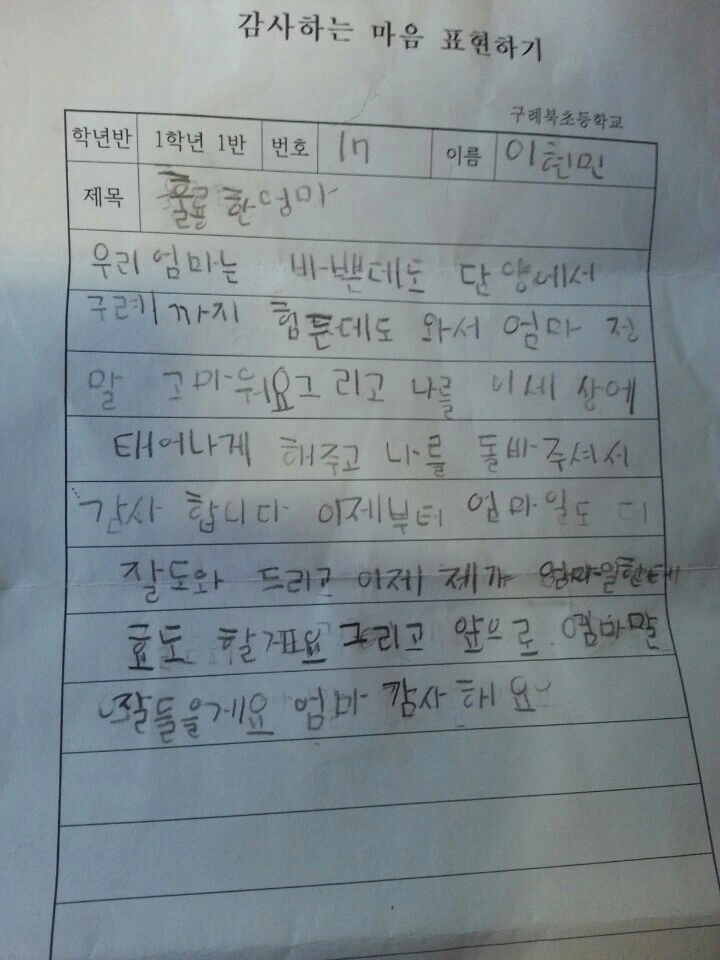 감사하는 마음 표현하기
구례북초등학교
학년반 1학년 1반 번호 17 이름 이현민
제목 훌륭한엄마
우리엄마는 바쁜데도 단양에서
구례까지 힘든데도 와서 엄마 정
말 고마워요그리고 나를 이세상에
태어나게 해주고 나를 돌바주셔서
감사 합니다 이제부터 엄마일도 더
잘도와 드리고 이제 제가 엄마일한테
효도 할게요 그리고 앞으로 엄마말
잘들을게요 엄마 감사해요